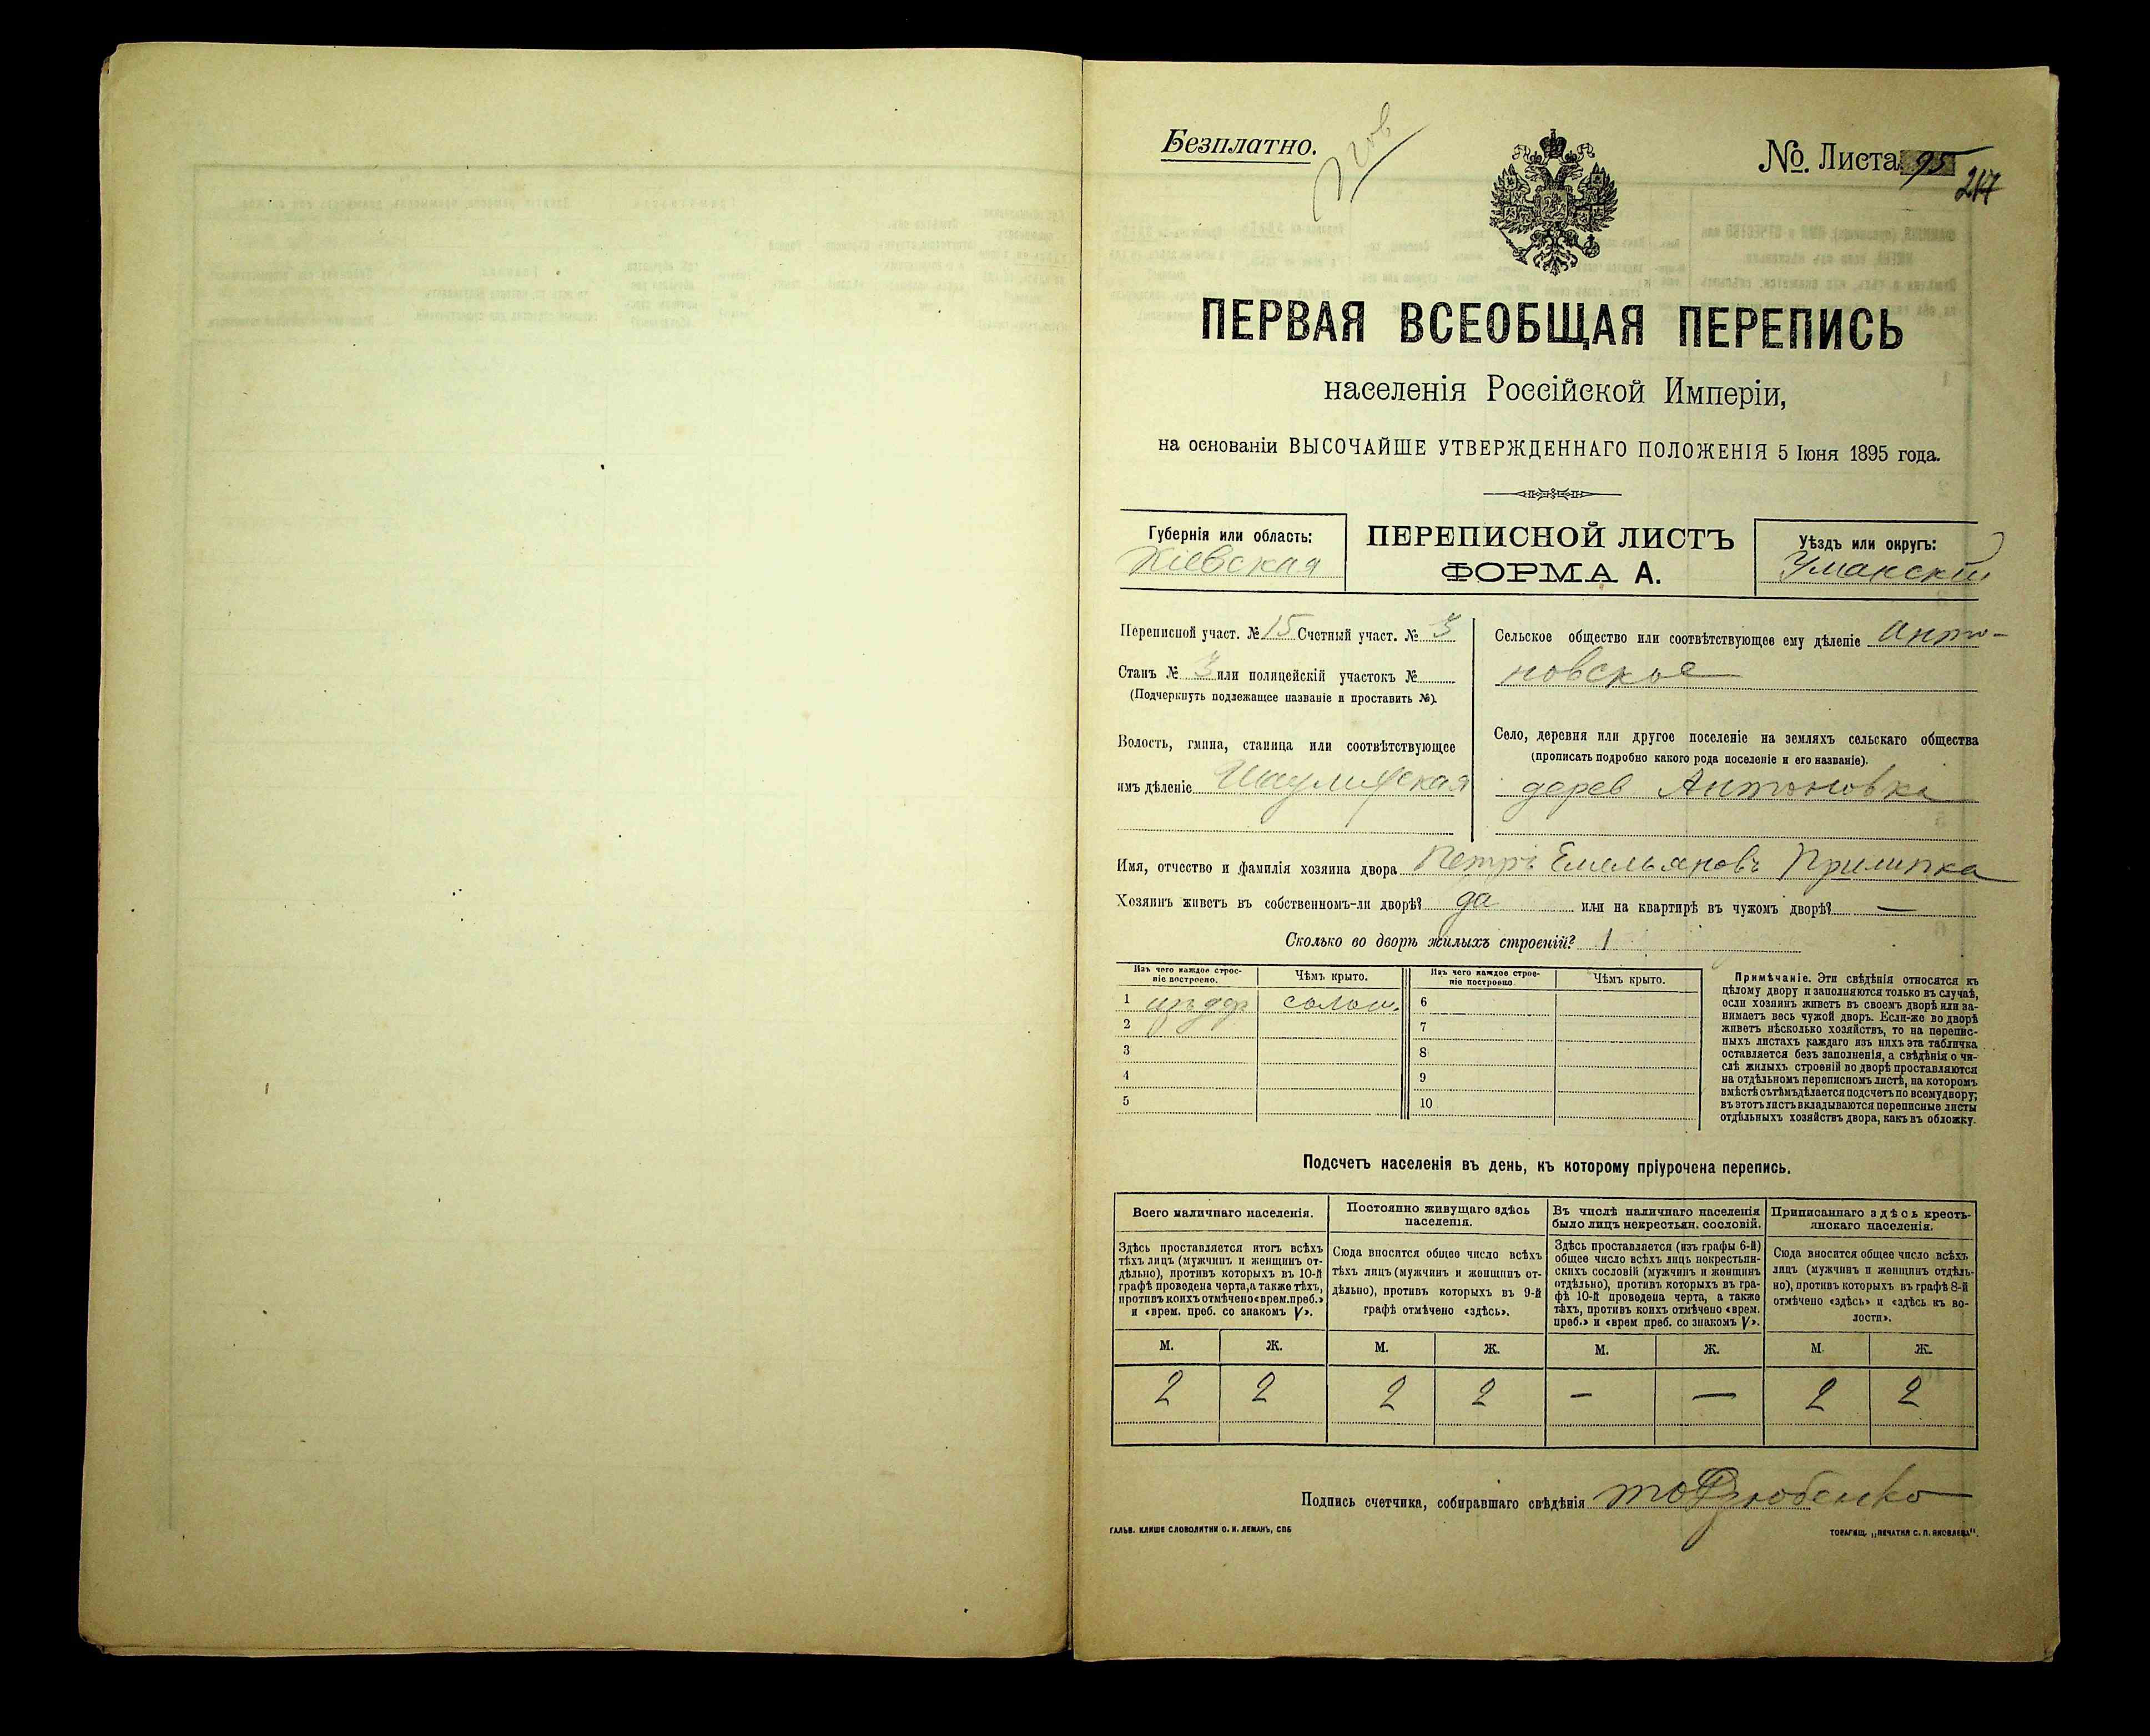 Безплатно.
№ Листа 95
217
ПЕРВАЯ ВСЕОБЩАЯ ПЕРЕПИСЬ
населенія Россійской Имперіи,
на основаніи ВЫСОЧАЙШЕ УТВЕРЖДЕННАГО ПОЛОЖЕНІЯ 5 Іюня 1895 года.
Губернія или область:
Кіевская
ПЕРЕПИСНОЙ ЛИСТЪ
ФОРМА А.
Уѣздъ или округъ:
Уманскій
Переписной участ. № 15 Счетный участ. № 3
Станъ № 3 или полицейскій участокъ №
(Подчеркнуть подлежащее названіе и проставить №).
Волость, гмина, станица или соотвѣтствующее
имъ дѣленіе
Сельское общество или соотвѣтствующее ему дѣленіе Анто-
новское
Село, деревня или другое поселеніе на земляхъ сельскаго общества
(прописать подробно какого рода поселеніе и его названіе).
дерев Антоновка
Имя, отчество и фамилія хозяина двора Петръ Емельяновъ Прилипка
Хозяинъ живетъ въ собственномъ-ли дворѣ? да или на квартирѣ въ чужомъ дворѣ? —
Сколько во дворѣ жилыхъ строеній? 1
Изъ чего каждое строе-
ніе построено.
Чѣмъ крыто.
Изъ чего каждое строе-
ніе построено
Чѣмъ крыто.
1 солом. 6
2 7
3 8
4 9
5 10
Примѣчаніе. Эти свѣдѣнія относятся къ
цѣлому двору и заполняются только въ случаѣ,
если хозяинъ живетъ въ своемъ дворѣ или за-
нимаетъ весь чужой дворъ. Если-же во дворѣ
живетъ нѣсколько хозяйствъ, то на перепис-
ныхъ листахъ каждаго изъ нихъ эта табличка
оставляется безъ заполненія, а свѣдѣнія о чи-
слѣ жилыхъ строеній во дворѣ проставляются
на отдѣльномъ переписномъ листѣ, на которомъ
вмѣстѣ съ тѣмъ дѣлается подсчетъ по всему двору;
въ этотъ листъ вкладываются переписные листы
отдѣльныхъ хозяйствъ двора, какъ въ обложку.
Подсчетъ населенія въ день, къ которому пріурочена перепись.
Всего наличнаго населенія.
Здѣсь проставляется итогъ всѣхъ
тѣхъ лицъ (мужчинъ и женщинъ от-
дѣльно), противъ которыхъ въ 10-й
графѣ проведена черта, а также тѣхъ,
противъ коихъ отмѣчено «врем. преб.»
и «врем. преб. со знакомъ V».
Постоянно живущаго здѣсь
населенія.
Сюда вносится общее число всѣхъ
тѣхъ лицъ (мужчинъ и женщинъ от-
дѣльно), противъ которыхъ въ 9-й
графѣ отмѣчено «здѣсь».
Въ числѣ наличнаго населенія
было лицъ некрестьян. сословій.
Здѣсь проставляется (изъ графы 6-й)
общее число всѣхъ лицъ некрестьян-
скихъ сословій (мужчинъ и женщинъ
отдѣльно), противъ которыхъ въ гра-
фѣ 10-й проведена черта, а также
тѣхъ, противъ коихъ отмѣчено «врем.
преб.» и «врем преб. со знакомъ V».
Приписаннаго здѣсь кресть-
янскаго населенія.
Сюда вносится общее число всѣхъ
лицъ (мужчинъ и женщинъ отдѣль-
но), противъ которыхъ въ графѣ 8-й
отмѣчено «здѣсь» и «здѣсь къ во-
лости».
М. Ж. М. Ж. М. Ж. М. Ж.
2 2 2 2 — — 2 2
Подпись счетчика, собиравшаго свѣдѣнія
ГАЛЬВ. КЛИШЕ СЛОВОЛИТНИ О. И. ЛЕМАНЪ, СПБ
ТОВАРИЩ. „ПЕЧАТНЯ С. П. ЯКОВЛЕВА".